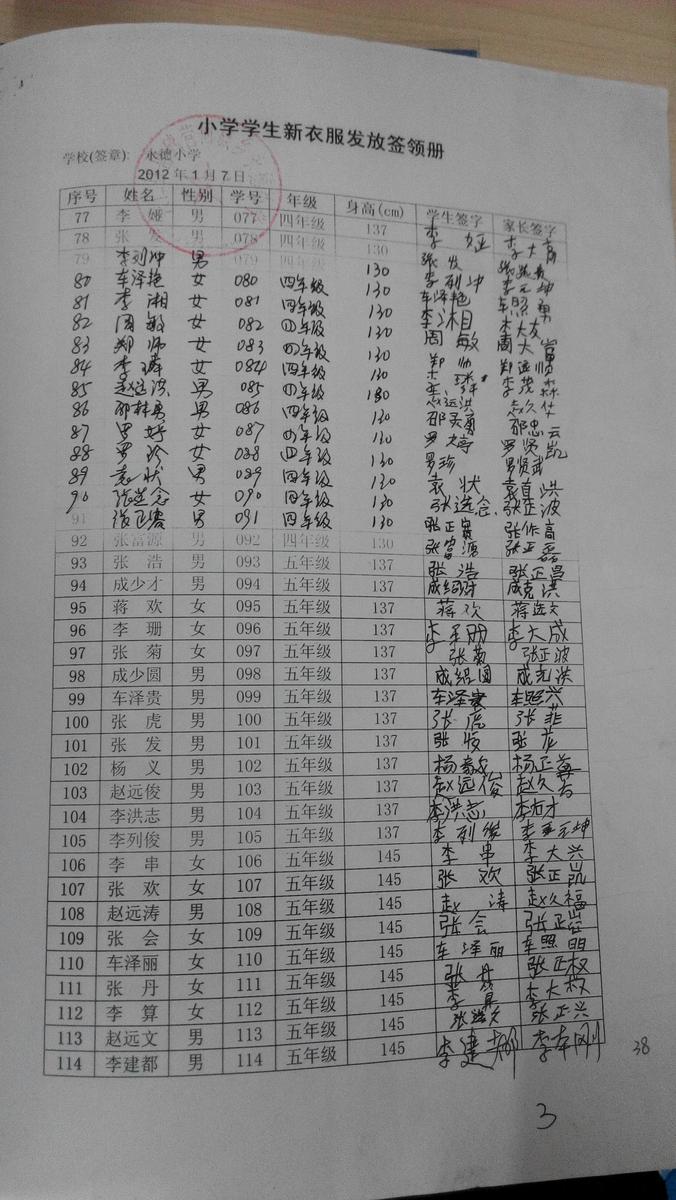 小学学生新衣服发放签领册
学校(签章): 永德小学
2012 年 1 月 7 日
序号 姓名 性别 学号 年级 身高(cm) 学生签字 家长签字
77 李 娅 男 077 四年级 137 李 娅 李大高
78 张 发 男 078 四年级 130 张 发
79 李列冲 男 079 四年级 130 李列冲
80 车泽艳 女 080 四年级 130 车泽艳 车照勇
81 李 湘 女 081 四年级 130 李湘 李大友
82 周 敏 女 082 四年级 130 周 敏 周大富
83 郑 帅 女 083 四年级 130 郑 帅 郑远顺
84 李 瑧 女 084 四年级 130 李茂森
85 赵远洪 男 085 四年级 130 赵远洪 赵久华
86 邵林勇 男 086 四年级 130 邵灵勇 邵忠云
87 罗婷 女 087 四年级 130 罗婷 罗贤凯
88 罗珍 女 088 四年级 130 罗珍 罗贤武
89 袁状 男 089 四年级 130 袁状 袁真洪
90 张选念 女 090 四年级 130 张选念 张正波
91 张正赛 男 091 四年级 130 张正赛 张作高
92 张富源 男 092 四年级 130 张富源
93 张 浩 男 093 五年级 137 张 浩 张正昌
94 成少才 男 094 五年级 137 成绍财 成克洪
95 蒋 欢 女 095 五年级 137 蒋欢 蒋选文
96 李 珊 女 096 五年级 137 李 珊 李大成
97 张 菊 女 097 五年级 137 张菊 张正波
98 成少圆 男 098 五年级 137 成绍圆 成克洪
99 车泽贵 男 099 五年级 137 车泽贵 车照兴
100 张 虎 男 100 五年级 137 张 虎 张 菲
101 张 发 男 101 五年级 137 张 发 张 龙
102 杨 义 男 102 五年级 137 杨毅 杨正
103 赵远俊 男 103 五年级 137 赵远俊 赵久
104 李洪志 男 104 五年级 137 李洪志 李右才
105 李列俊 男 105 五年级 137 李列俊
106 李 串 女 106 五年级 145 李 串 李大兴
107 张 欢 女 107 五年级 145 张 欢 张正凯
108 赵远涛 男 108 五年级 145 赵 涛 赵久福
109 张 会 女 109 五年级 145 张会 张正
110 车泽丽 女 110 五年级 145 车泽丽 车照明
111 张 丹 女 111 五年级 145 张 丹 张正权
112 李 算 女 112 五年级 145 李 算 李大权
113 赵远文 男 113 五年级 145 张正兴
114 李建都 男 114 五年级 145 李建都 李本刚
38
3